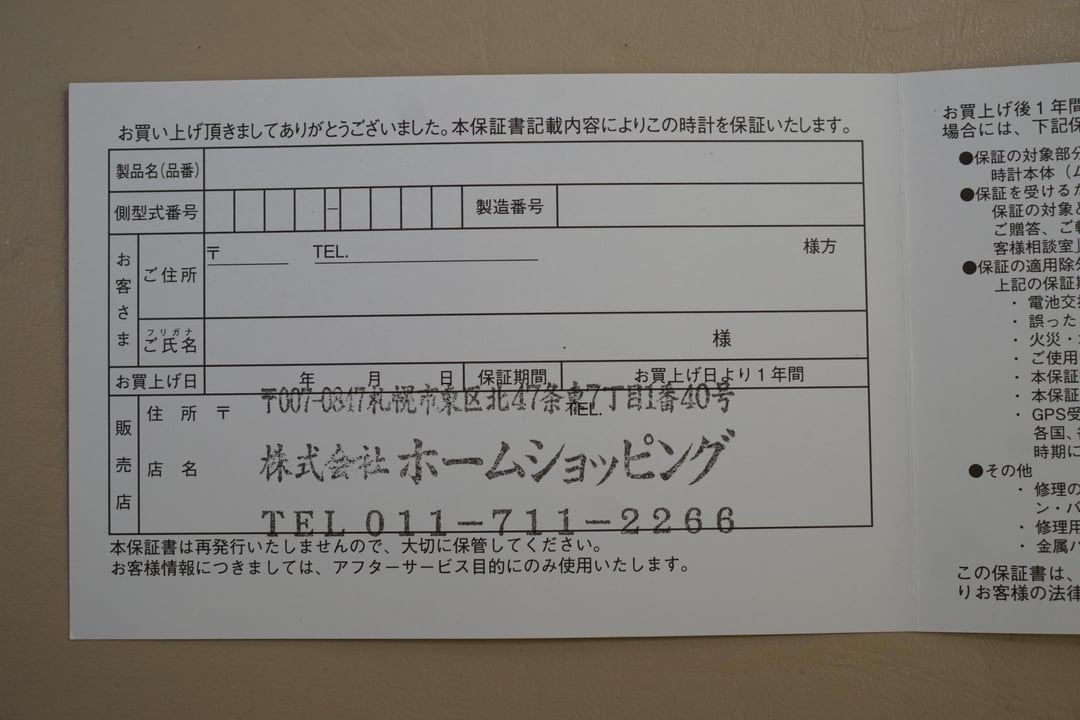 お買い上げ頂きましてありがとうございました。本保証書記載内容によりこの時計を保証いたします。
製品名(品番)
側型式番号 - 製造番号
お客さま
ご住所 〒 TEL. 様方
フリガナ
ご氏名 様
お買上げ日 年 月 日 保証期間 お買上げ日より1年間
販売店
住所 〒 TEL.
〒007-0847札幌市東区北47条東7丁目1番40号
店名 株式会社ホームショッピング
TEL 011-711-2266
本保証書は再発行いたしませんので、大切に保管してください。
お客様情報につきましては、アフターサービス目的にのみ使用いたします。
お買上げ後1年間
場合には、下記保
●保証の対象部分
時計本体(ム
●保証を受けるた
保証の対象と
ご贈答、ご転
客様相談室
●保証の適用除外
上記の保証期
・電池交換
・誤った
・火災・
・ご使用
・本保証
・本保証
・GPS受
各国、
時期に
●その他
・修理の
ン・バ
・修理用
・金属バ
この保証書は、
りお客様の法律